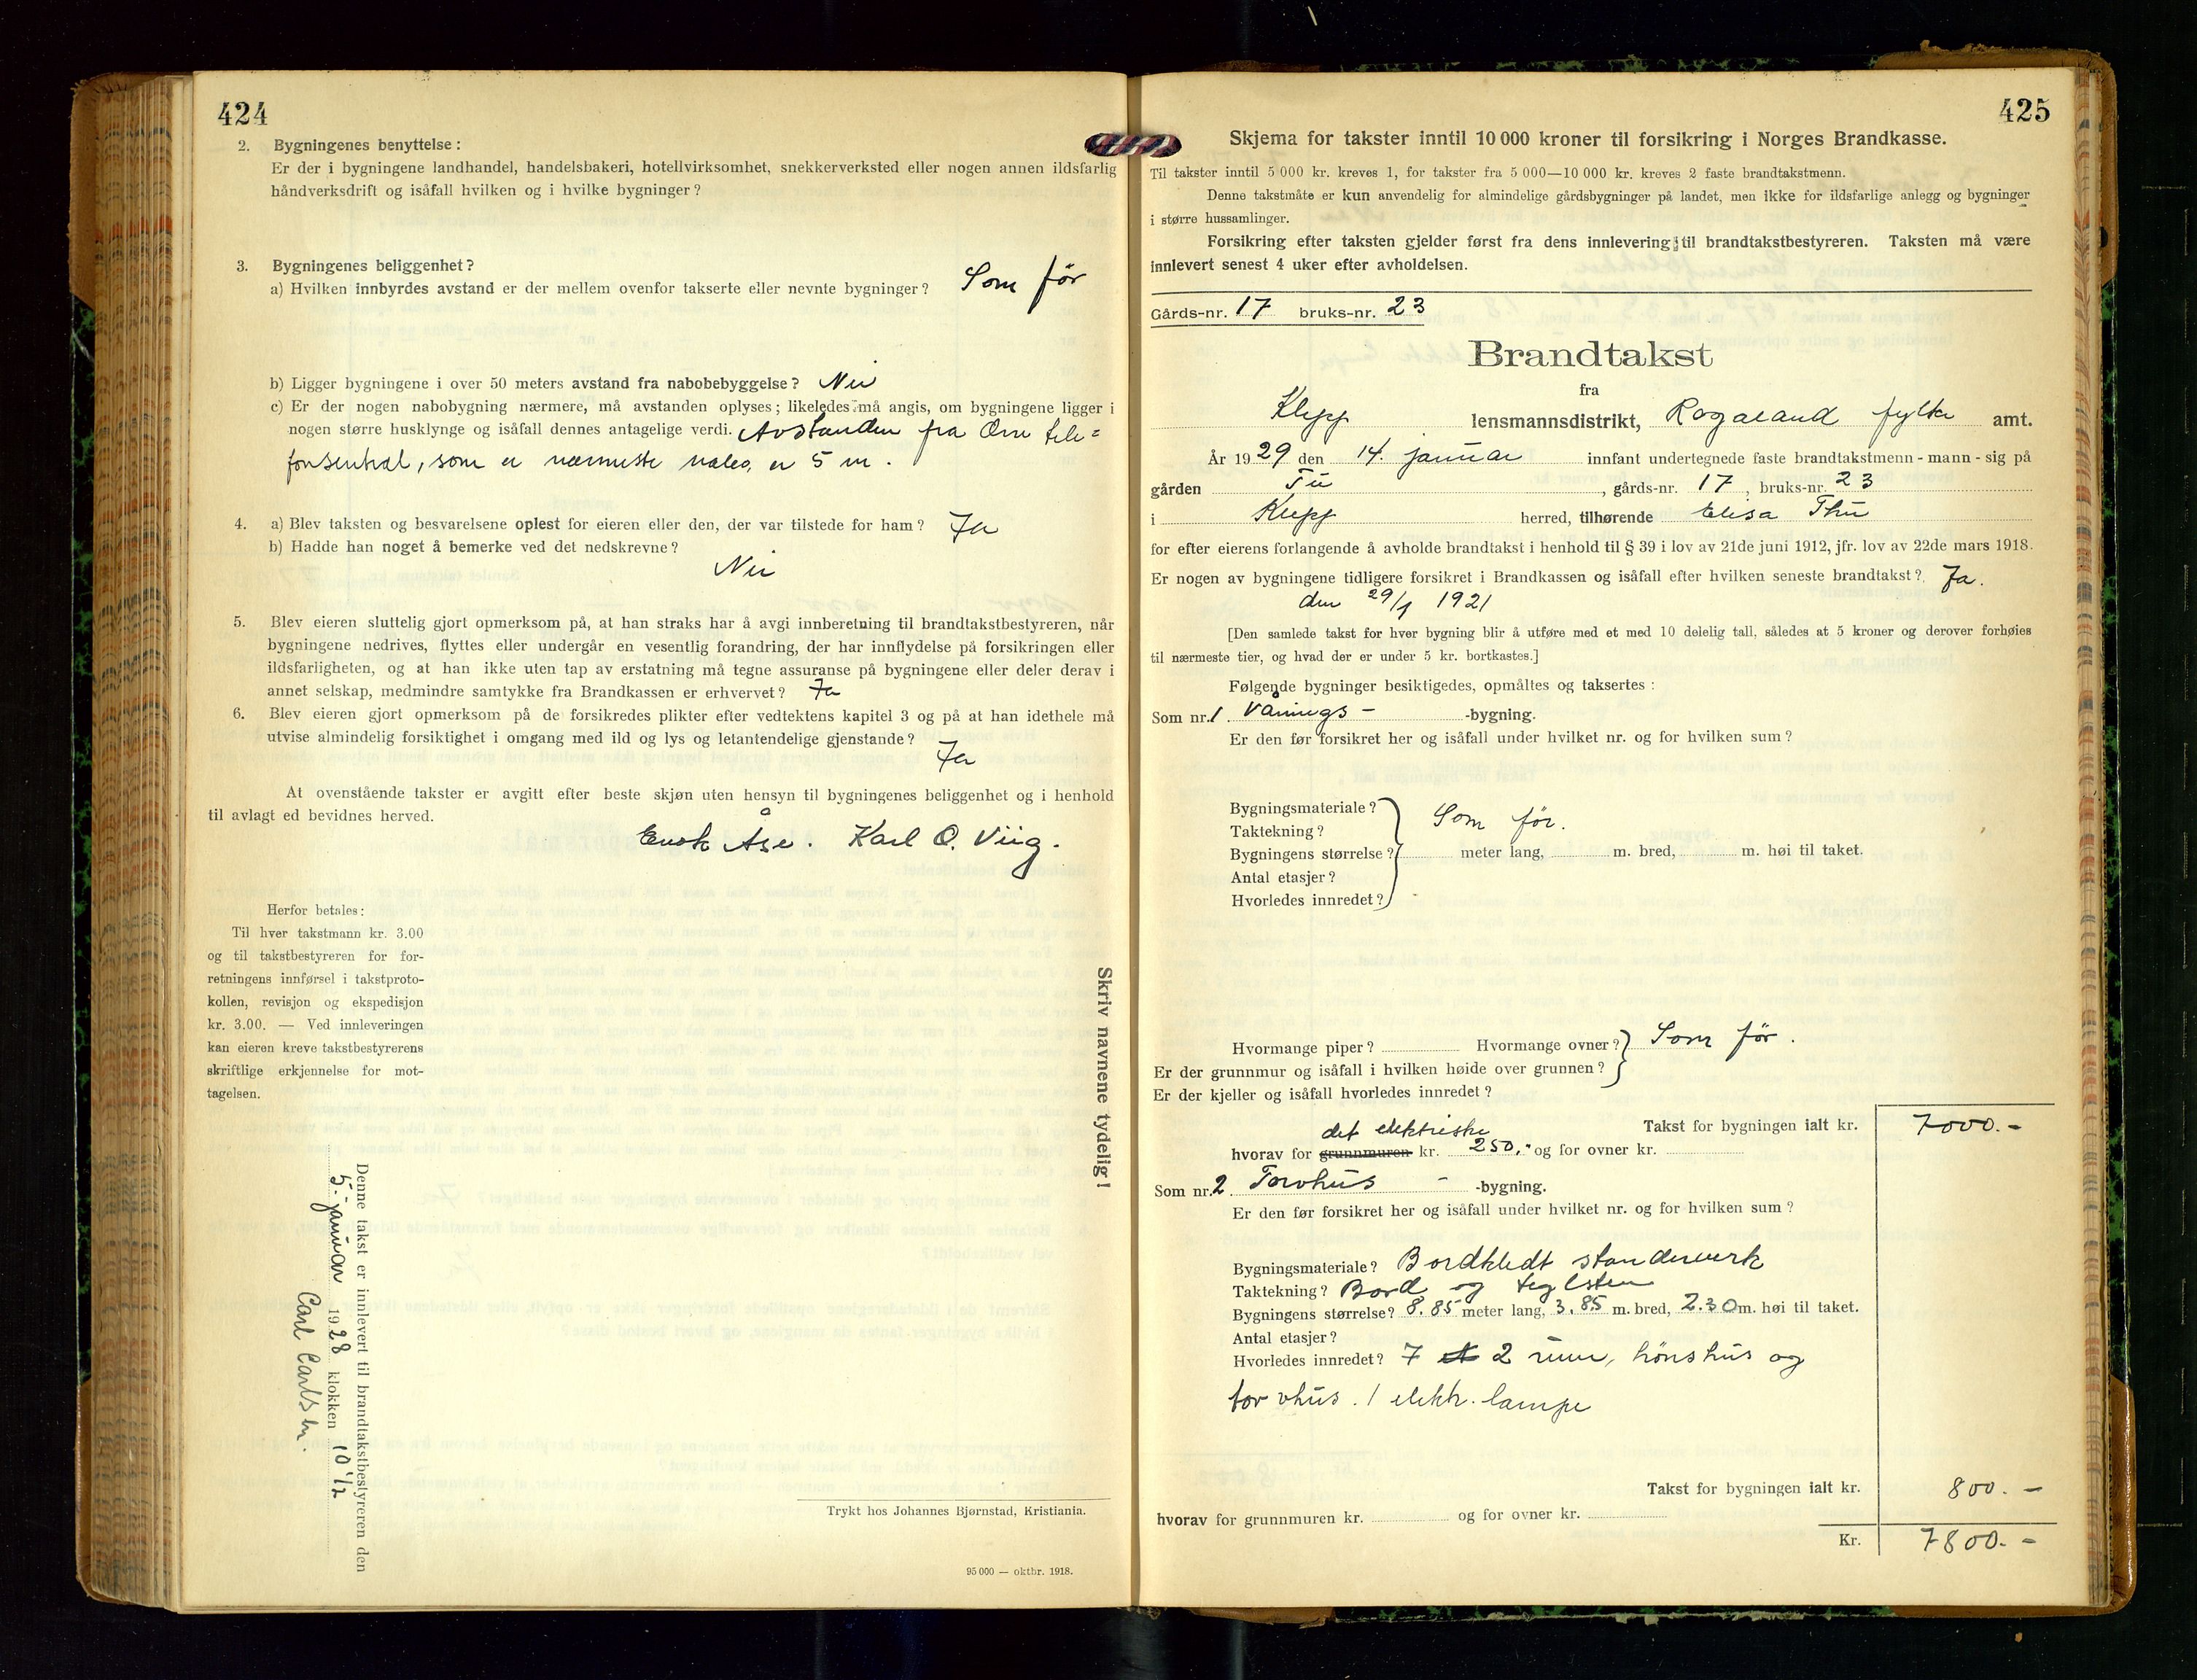 424
2. Bygningenes benyttelse :
Er der i bygningene landhandel, handelsbakeri, hotellvirksomhet, snekkerverksted eller nogen annen ildsfarlig
håndverksdrift og isåfall hvilken og i hvilke bygninger ?
3. Bygningenes beliggenhet ?
a) Hvilken innbyrdes avstand er der mellem ovenfor takserte eller nevnte bygninger ? Som før
b) Ligger bygningene i over 50 meters avstand fra nabobebyggelse ? Nei
c) Er der nogen nabobygning nærmere, må avstanden oplyses ; likeledes må angis, om bygningene ligger i
nogen større husklynge og isåfall dennes antagelige verdi. Avstanden fra Orre tele=
fonsentral, som er nærmeste nabo, er 5 m.
4. a) Blev taksten og besvarelsene oplest for eieren eller den, der var tilstede for ham ? Ja
b) Hadde han noget å bemerke ved det nedskrevne ?
Nei
5. Blev eieren sluttelig gjort opmerksom på, at han straks har å avgi innberetning til brandtakstbestyreren, når
bygningene nedrives, flyttes eller undergår en vesentlig forandring, der har innflydelse på forsikringen eller
ildsfarligheten, og at han ikke uten tap av erstatning må tegne assuranse på bygningene eller deler derav i
annet selskap, medmindre samtykke fra Brandkassen er erhvervet ? Ja
6. Blev eieren gjort opmerksom på de forsikredes plikter efter vedtektens kapitel 3 og på at han idethele må
utvise almindelig forsiktighet i omgang med ild og lys og letantendelige gjenstande ?
Ja
At ovenstående takster er avgitt efter beste skjøn uten hensyn til bygningenes beliggenhet og i henhold
til avlagt ed bevidnes herved.
Enok Åse. Karl O. Viig.
Herfor betales :
Til hver takstmann kr. 3.00
og til takstbestyreren for for-
retningens innførsel i takstproto-
kollen, revisjon og ekspedisjon
kr. 3.00. — Ved innleveringen
kan eieren kreve takstbestyrerens
skriftlige erkjennelse for mot-
tagelsen.
Skriv navnene tydelig !
Denne takst er innlevert til brandtakstbestyreren den
5. januar 1928 klokken 10 1/2
Carl Carlsen.
Trykt hos Johannes Bjørnstad, Kristiania.
95 000 — oktbr. 1918.
425
Skjema for takster inntil 10 000 kroner til forsikring i Norges Brandkasse.
Til takster inntil 5 000 kr. kreves 1, for takster fra 5 000—10 000 kr. kreves 2 faste brandtakstmenn.
Denne takstmåte er kun anvendelig for almindelige gårdsbygninger på landet, men ikke for ildsfarlige anlegg og bygninger
i større hussamlinger.
Forsikring efter taksten gjelder først fra dens innlevering til brandtakstbestyreren. Taksten må være
innlevert senest 4 uker efter avholdelsen.
Gårds-nr. 17 bruks-nr. 23
Brandtakst
fra
Klepp lensmannsdistrikt, Rogaland fylke amt.
År 1929 den 14. januar innfant undertegnede faste brandtakstmenn - mann - sig på
gården Tu, gårds-nr. 17, bruks-nr. 23
i Klepp herred, tilhørende Elisa Thu
for efter eierens forlangende å avholde brandtakst i henhold til § 39 i lov av 21de juni 1912, jfr. lov av 22de mars 1918.
Er nogen av bygningene tidligere forsikret i Brandkassen og isåfall efter hvilken seneste brandtakst ? Ja.
den 29/1 1921
[Den samlede takst for hver bygning blir å utføre med et med 10 delelig tall, således at 5 kroner og derover forhøies
til nærmeste tier, og hvad der er under 5 kr. bortkastes.]
Følgende bygninger besiktigedes, opmåltes og taksertes :
Som nr. 1 Vånings - -bygning.
Er den før forsikret her og isåfall under hvilket nr. og for hvilken sum ?
Bygningsmateriale ?
Taktekning ? Som før.
Bygningens størrelse ? meter lang, m. bred, m. høi til taket.
Antal etasjer ?
Hvorledes innredet ?
Hvormange piper ? Hvormange ovner ? Som før.
Er der grunnmur og isåfall i hvilken høide over grunnen ?
Er der kjeller og isåfall hvorledes innredet ?
Takst for bygningen ialt kr. 7000.-
det elektriske
hvorav for grunnmuren kr. 250,- og for ovner kr.
Som nr. 2 Torvhus - -bygning.
Er den før forsikret her og isåfall under hvilket nr. og for hvilken sum ?
Bygningsmateriale ? Bordkledt standerverk
Taktekning ? Bord og teglsten
Bygningens størrelse ? 8.85 meter lang, 3.85 m. bred, 2.30 m. høi til taket.
Antal etasjer ?
Hvorledes innredet ? 7 2 rum, hønshus og
torvhus. 1 elektr. lampe
Takst for bygningen ialt kr. 800.-
hvorav for grunnmuren kr. og for ovner kr.
Kr. 7800.-